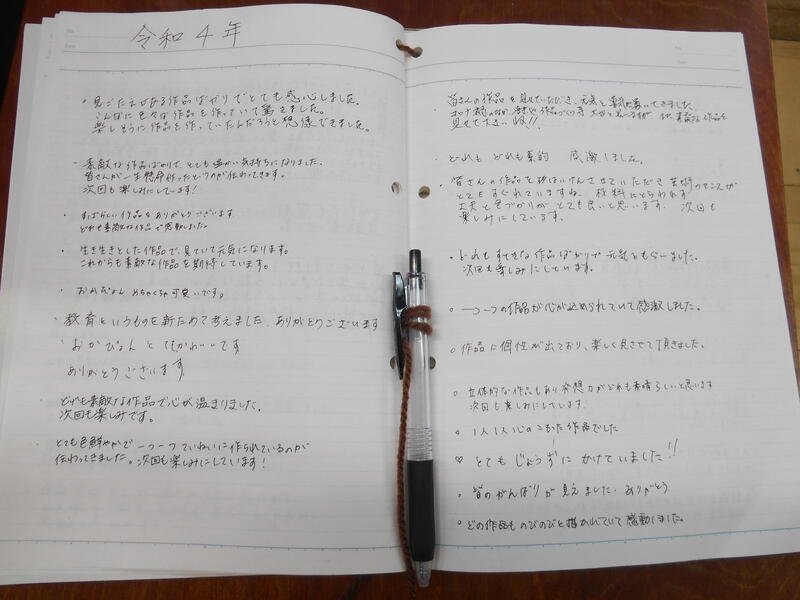 令和4年
見ごたえがある作品ばかりでとても感心しました。
こんなに色々な作品を作っていて驚きました。
楽しそうに作品を作っていたんだろうと想像できました。
素敵な作品ばかりで、とても温かい気持ちになりました。
皆さんが一生懸命作ったというのが伝わってきます。
次回も楽しみにしています!
すばらしい作品をありがとうございます
どれも素敵な作品で感動しました
生き生きとした作品で、見ていて元気になります。
これからも素敵な作品を期待しています。
おかぴょん めちゃくちゃ可愛いです。
教育というものを新ためて考えました。ありがとうございます
おかぴょん とてもかわいいです
ありがとうございます
どれも素敵な作品で心が温まりました。
次回も楽しみです。
とても色鮮やかで一つ一つていねいに作られているのが
伝わってきました。次回も楽しみにしています!
皆さんの作品を見せていただき、元気と
コロナ禍のなか 作品づくり等 大変だと 素敵な作品を
見せて下さい
どれも どれも素的 感激しました。
皆さんの作品を はいけんさせていただき 芸術のセンスが
とてもすぐれていますね 材料にとらわれず
工夫と色づかいが とても良いと思います 次回も
楽しみにしています。
どれもすてきな作品ばかりで元気をもらいました。
次回も楽しみにしています。
一つ一つの作品が心が込められていて感激しました。
作品に個性が出ており、楽しく見させて頂きました。
立体的な作品もあり発想力がどれも素晴らしいと思います
次回も楽しみにしています
1人1人心のこもった作品でした
♡ とてもじょうずにかけていました!!
皆のがんばりが見えました。ありがとう
どの作品ものびのびと描かれていて感動しました。